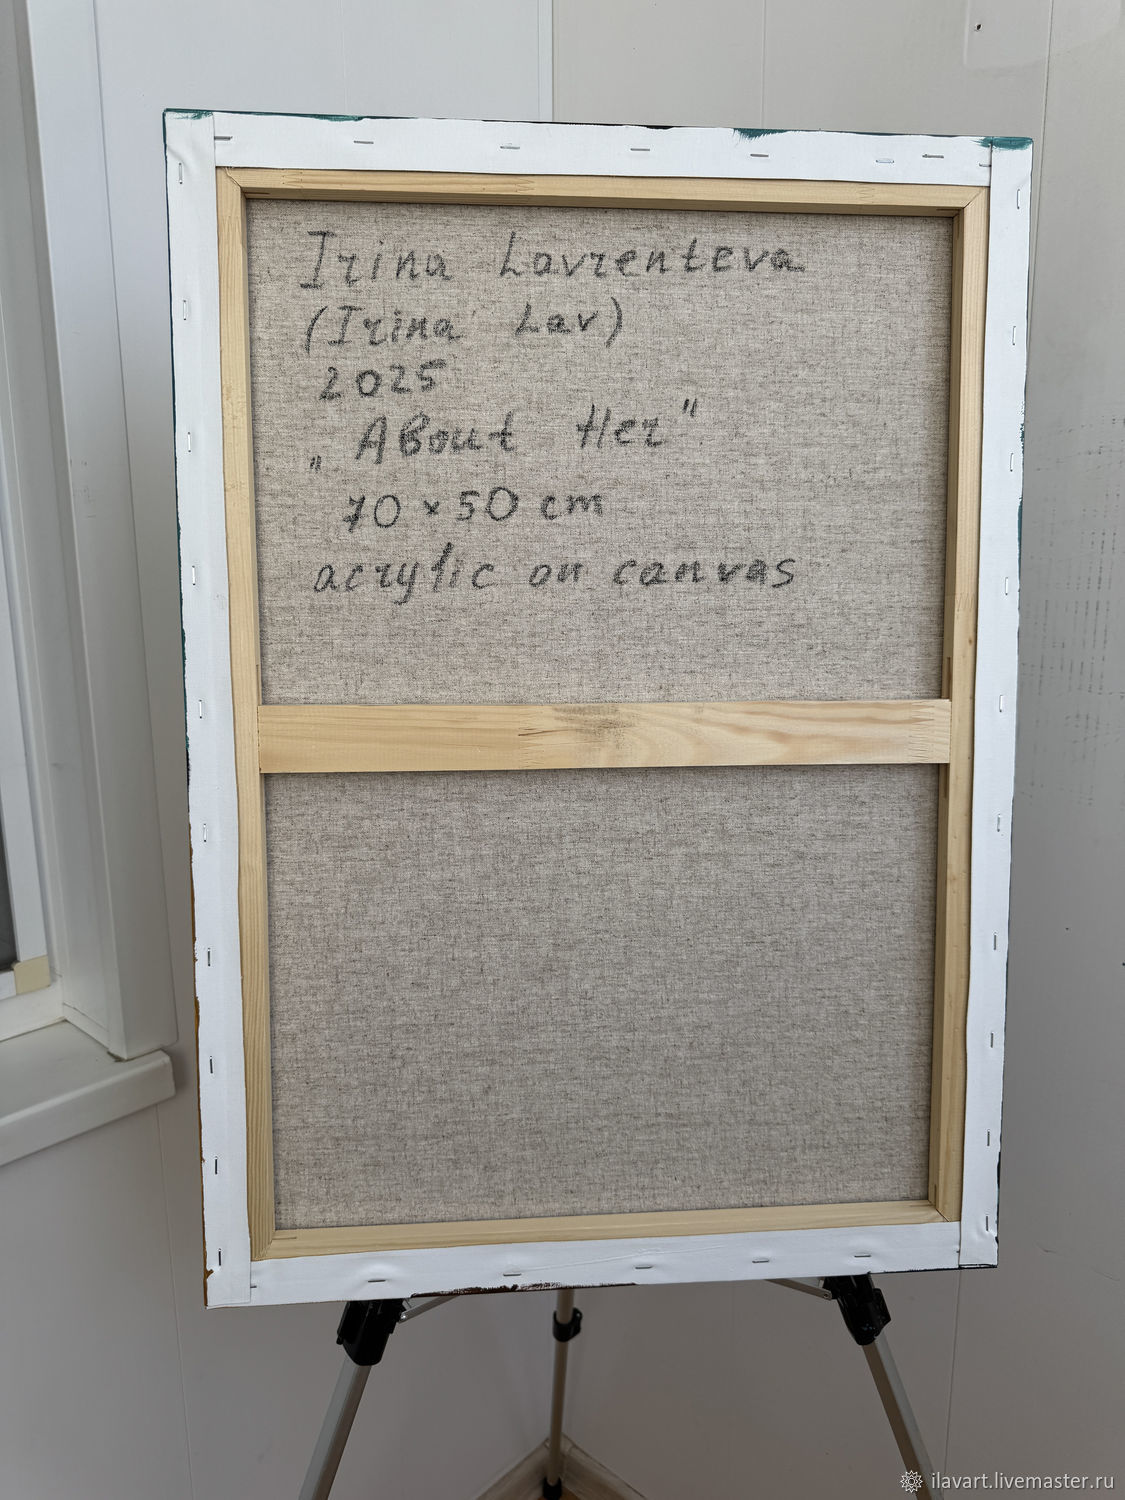 Irina Lavrenteva
(Irina Lav)
2025
„About Her"
70×50 cm
acrylic on canvas
ilavart.livemaster.ru